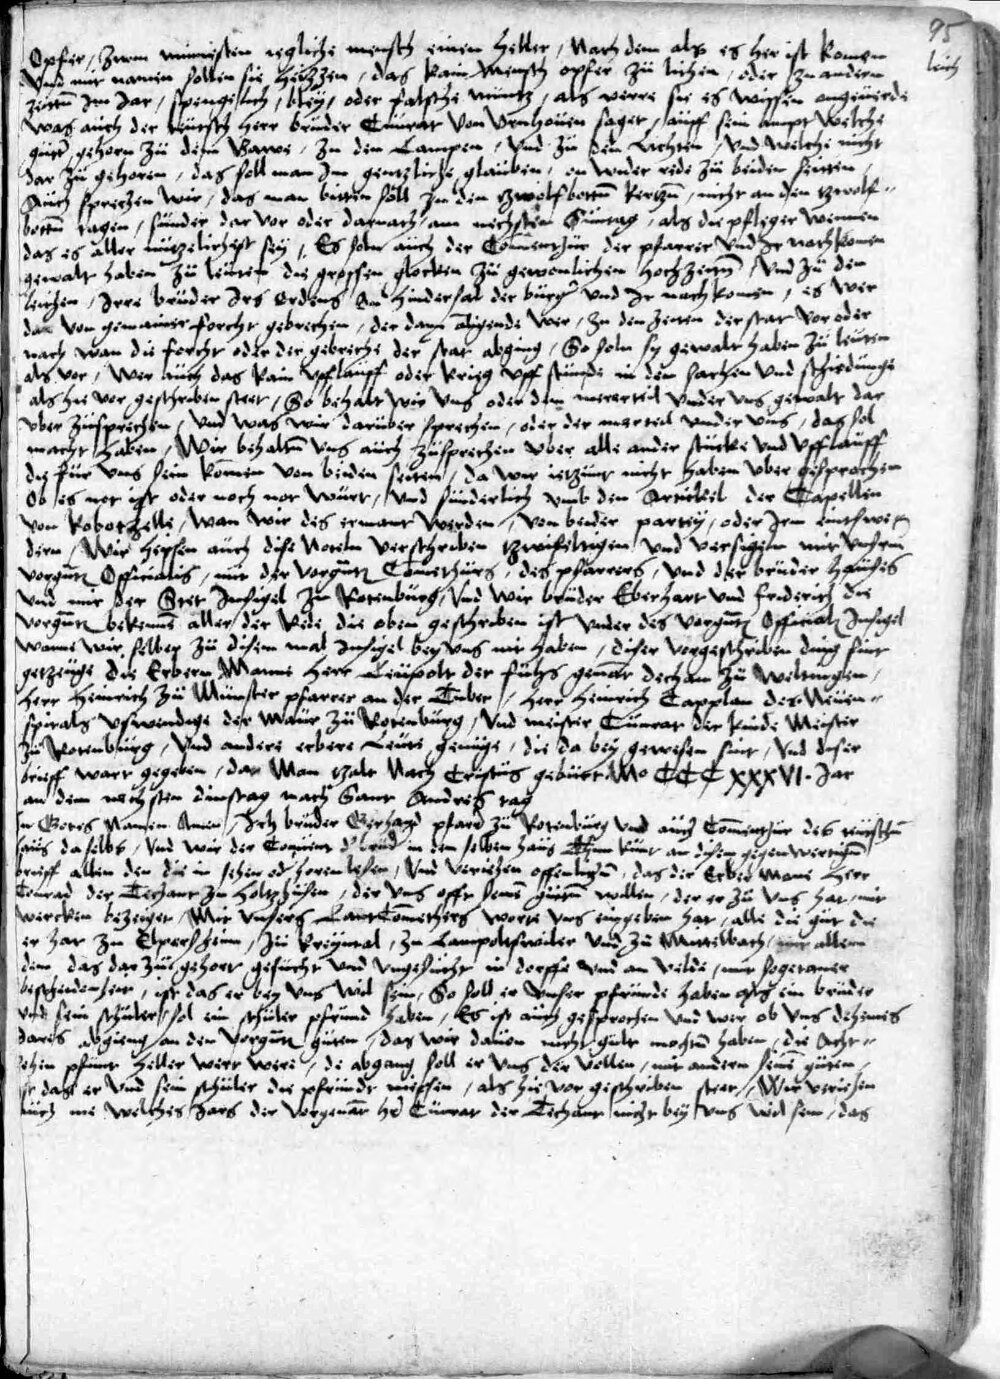 95
leich
Opfer / Zwm minnsten iegliche mensch einen heller / Nach dem als es her ist komen
Und mit namen sollen sie heizzen / das kain mensch opfer zü lichen / oder zu andern
zeitten Im Jar / spengelich / bley / oder falsche müntz / als verre sie es wissen ongeuerde
Was auch der teütsch herr brüder Cünrat von vrnhouen saget / auff sein ampt welche
güter gehorn zü dem Bawe / zu den Lampen / Und zü den Lichten / Und welche nicht
dar zü gehoren / das soll man Im gentzliche glauben / on wider rede zü beiden seitten /
Auch sprechen wir / das man bitten soll zu den tzwolfbotten kertzen / nicht an den tzwolf=
botten tagen / sünder dar vor oder darnach / am nechsten Süntag / als die pfleger wennen
das es aller nützelichest sey / Es soln auch der Comenthür der pfarrer und Ir nachkomen
gewalt haben zü leüten die grossen glocken zü gewonlichen hochzeiten / Und zü den
leichen / Irre brüder Irs Ordens An hindersal der bürger und Ir nachkomen / es wer
dan von gemainer forcht gebrechen / der dann anligende wer / Zu den zeiten der stat vor oder
nach wan die forcht oder der gebreche der stat abging / So soln sy gewalt haben zü leuten
als vor / Wer auch das kain vfflauff oder krieg uff stünde in den sachen und schidunge
als hie vor geschriben steet / So behalt wir uns oder dem mererteil under uns gewalt dar
vber zusprechen / Und was wir darüber sprechen / oder der merteil under uns / das sol
macht haben / Wir behalten uns auch zusprechen vber alle ander stücke und vfflauff
die für uns sein komen von beiden seiten / da wir ietzünt nicht haben vber gesprochen
Ob es not ist oder noch not würt / Und sünderlich vmb den Artickel der Capellen
von kobolzelle / Wan wir des ermant werden / von beider partey / oder Irm eintzwe
dern / Wir heissen auch dise Noteln verschreiben tzwifeltigen und versigeln mit unserm
vorgnanten Officialis / mit der vorgnanten Comethürs / des pfarrers / und der brüder hauses
und mit der Stet Insigel zu Rotenbürg / Und wir brüder Eberhart und friderich die
vorgnanten bekennen aller der Rede die oben geschriben ist under des vorgnanten Officials Insigel
wanne wir selber zü disem mal Insigel bey uns nit haben / diser vorgeschriben ding sint
getzeüge die Erbern Manne herr Leüpolt der fühs genant dechan zü Weltingen /
herr heinrich zü Münster pfarrer an der Tuber / herr heinrich Capplan des Neüen=
spitals vswendige der Maür zü Rotenbürg / Und meister Cünrat der kinde Meister
zü Rotenbürg / Und andere erbere Leüte genüge / die da bey gewesen sint / Und diser
brieff wart gegeben / da Man tzalt Nach Cristüs gebürt Mo CCC XXXVI. Jar
an dem nechsten dinstag nach Sant Andres tag
In Gotes Namen Amen / Ich brüder Gerhard pfarrer zü Rotenbürg und auch Comenthür des teütschen
haüs daselbs / Und wir der Convent der brüder in dem selben haüs Thun kunt an disem gegenwertigen
brieff allen den die in sehen oder horen lesen / Und veriehen offentlichen / das der Erber Mane herr
Conrad der Techant zu holtzhüsen / der uns offt seines güten willen / der er zü uns hat / mit
wercken bezeiget / Mit unsers LantComethers worte uns eingeben hat / alle die güt die
er hat zu Elpersheim / zü kreyntal / zu Lampoltswiler und zü Mittelbach / mit allem
dem / das dar zü gehort gesücht und ungesücht in dorffe und an velde / mit sogetaner
bescheidenheit / ist das er bey uns wil sein / So soll er unser pfründe haben als ein brüder
und sein schüler sol ein schüler pfründ haben / Es ist auch gesprochen und wer ob uns deheines
dares abgieng an den vorgnanten güten / das wir dauon nicht gült mochten haben / die Acht=
zehen pfünt heller wert were / de abgang soll er uns der vollen / mit andern seinen güten
ist das er und sein schüler die pfründe niessen / als hie vor geschriben steet / Wir veriehen
auch me welches Jars der vorgenant her Cünrat der Techant nicht bey uns wil sein / das